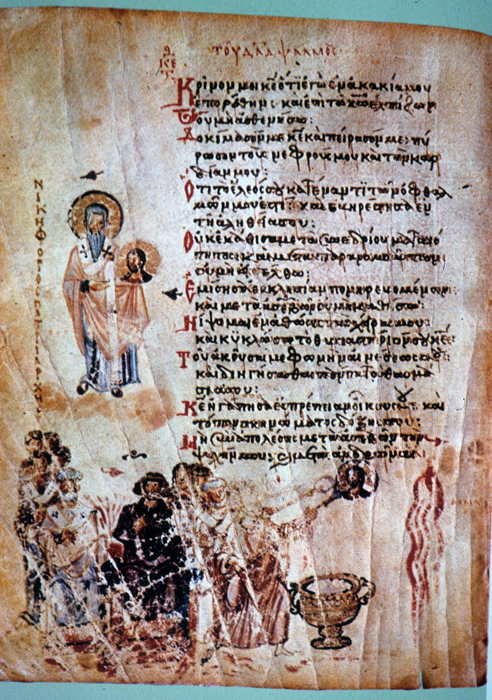 τοῦ δᾱδ ψαλμος
ΚΕ
Κρίνον μοι κε ὅτι ἐγὼ ἐν ἀκακία μου
ἐπορεύθην· και ἐπι τω κω ἐλπίζων
ου μη ασθενησω:
Δοκίμασόν με κε και πείρασόν με· πύ
ρωσον τους νεφρούς μου και την καρ
δίαν μου:
Ὅτι το ἔλεός σου κατέναντι των ὀφθαλ
μῶν μου ἐστι· και ευηρέστησα εν
τη αληθεία σου:
Οὐκ ἐκάθισα μετα συνεδρίου ματαιό
τητος και μετα παρανομούντων
ου μη εισέλθω:
Ἐμίσησα ἐκκλησίαν πονηρευομένων
και μετα ασεβών ου μη καθίσω:
Νίψομαι εν αθώοις τας χειρας μου·
και κυκλώσω το θυσιαστήριόν σου κε:
Του ακουσαι με φωνης αινεσεως σου
και διηγησασθαι παντα τα θαυμα
σια σου:
Κε ηγαπησα ευπρεπειαν οικου σου και
τοπον σκηνωματος δοξης σου:
Μη συναπολεσης μετα ασεβων την
ψυχην μου
ΝΙΚΗΦΟΡΟΣ